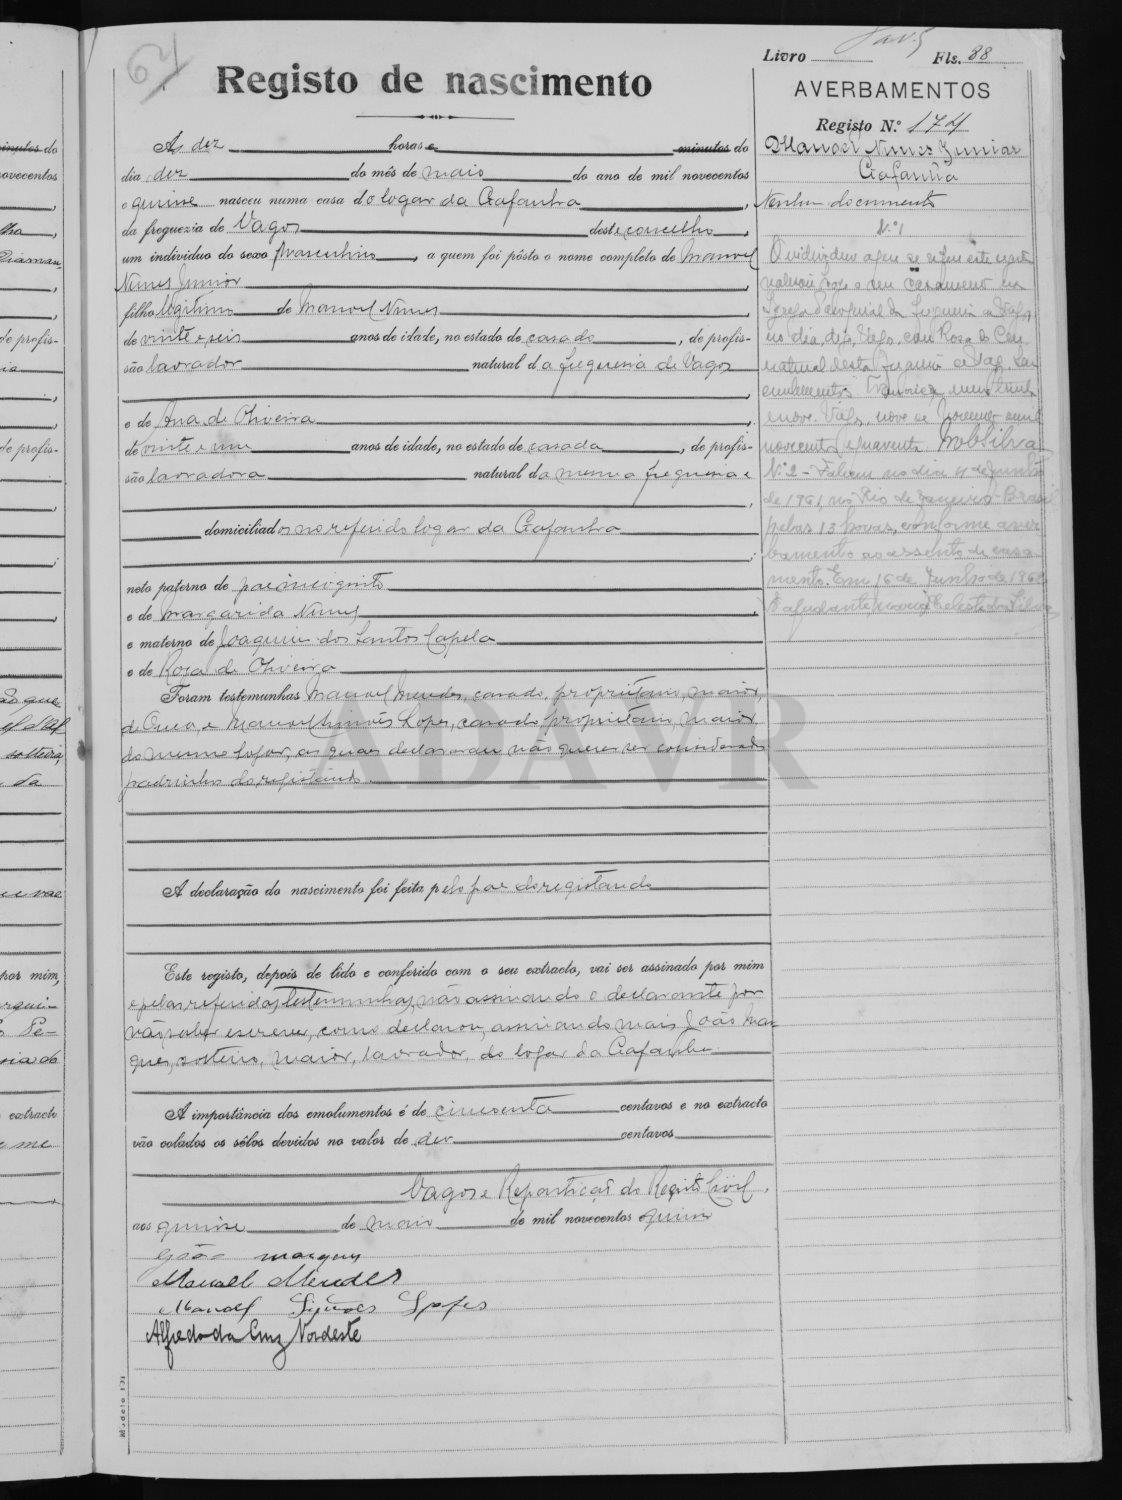 64
Livro Fls. 88
Registo de nascimento
AVERBAMENTOS
Registo N.º 174
Manoel Nunes Junior
Gafanha
Nenhum documento
Ás dez horas e minutos do
dia dez do mês de maio do ano de mil novecentos
e quinse nasceu numa casa do logar da Gafanha,
da freguezia de Vagos deste concelho,
um individuo do sexo masculino, a quem foi pôsto o nome completo de Manoel
Nunes Junior
filho legitimo de Manoel Nunes
de vinte e seis anos de idade, no estado de casado, de profis-
são lavrador natural da freguesia de Vagos
e de Ana de Oliveira
de vinte e um anos de idade, no estado de casada, de profis-
são lavradora natural da mesma freguesia e
domiciliados no referido logar da Gafanha
neto paterno de pae incognito
e de Margarida Nunes
e materno de Joaquim dos Santos Capela
e de Rosa de Oliveira
Foram testemunhas Manoel Mendes, casado, proprietario, maior,
de e Manoel Simões Lopes, casado, proprietario, maior
do mesmo logar, os quaes declararam não querer ser considerados
padrinhos do registando
A declaração do nascimento foi feita pelo pae do registando
Este registo, depois de lido e conferido com o seu extracto, vai ser assinado por mim
e pelas referidas testemunhas, não assinando o declarante por
não saber escrever, como declarou, assinando mais João Mar-
ques, solteiro, maior, lavrador, do logar da Gafanha
A importância dos emolumentos é de cincoenta centavos e no extracto
vão colados os sêlos devidos no valor de dez centavos
Vagos e Repartição do Registo Civil,
aos quinse de maio de mil novecentos quinse
João Marques
Manoel Mendes
Manoel Simões Lopes
Alfredo da Cruz Nordeste
N.º 1
O individuo a que se refere este registo
celebrou hoje o seu casamento na
Igreja Paroquial da freguesia de Vagos
com Rosa do Céu
natural desta freguesia de Vagos
Vagos, nove de Novembro mil
novecentos e quarenta
N.º 2 - Faleceu no dia 4 de Junho
de 1961, no Rio de Janeiro - Brasil
pelas 13 horas, conforme aver
bamento ao assento de casa
mento. Em 16 de Junho de
O ajudante, Maria Celeste da Silva
ADAVR
Modelo 131